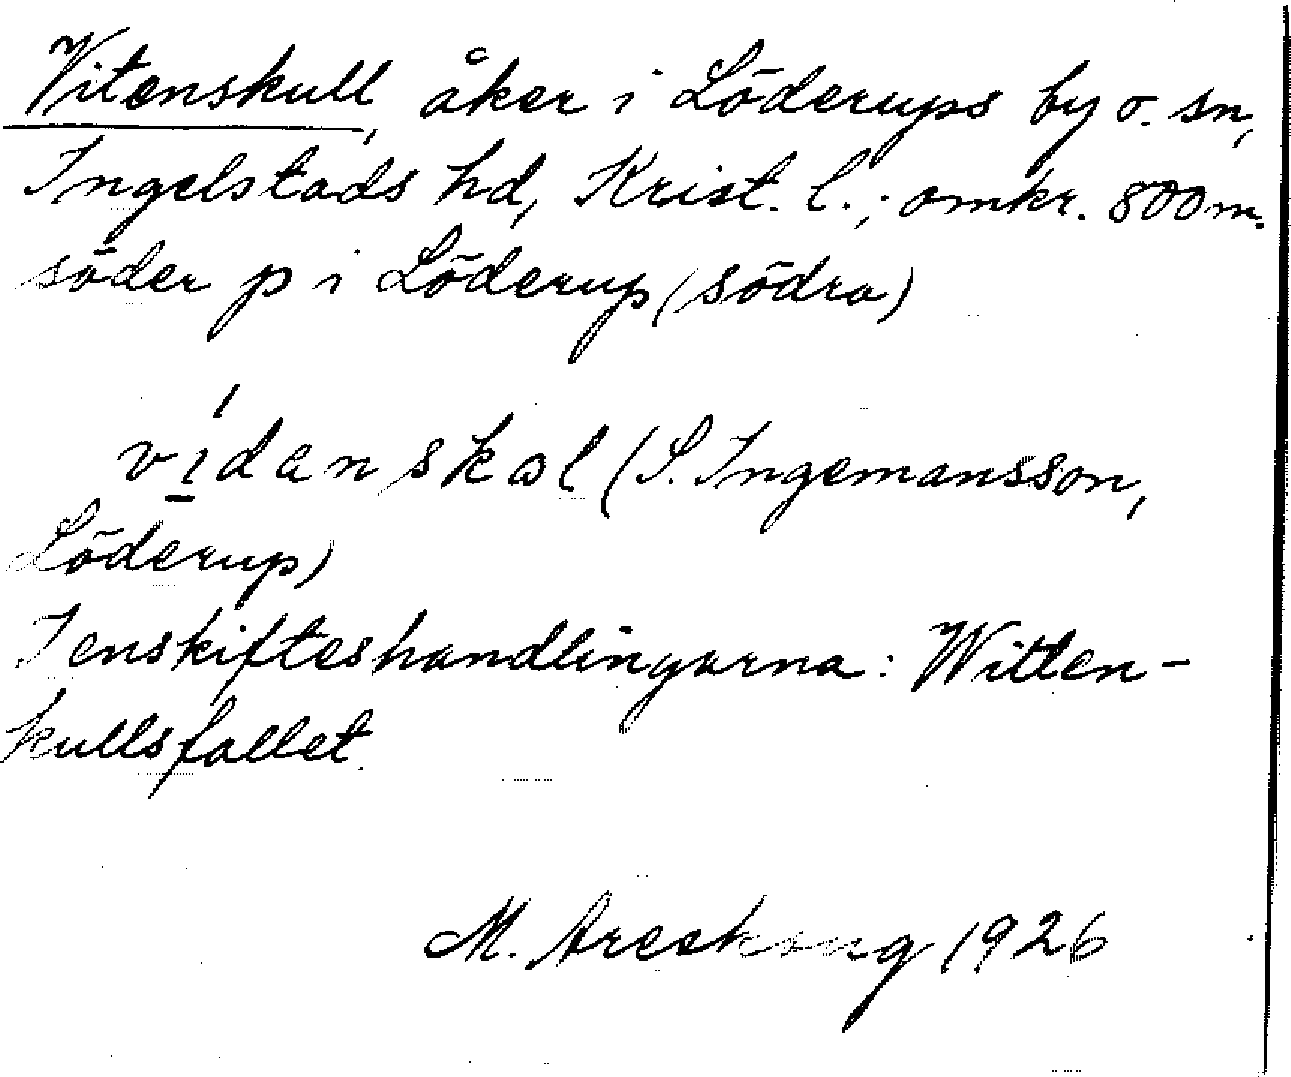 Vitenskull, åker i Löderups by o. sn,
Ingelstads hd, Krist. l.; omkr. 800 m.
söder p i Löderup (södra)
vídanskal (S. Ingemansson,
Löderup)
I enskifteshandlingarna: Witten-
kullsfallet.
M. Areskoug 1926